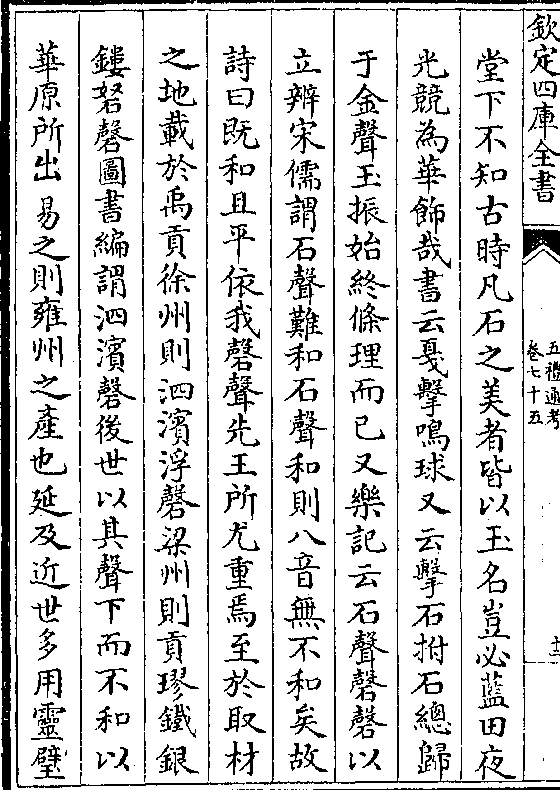 欽定四庫全書
五禮通考
卷七十五
十二
堂下不知古時凡石之美者皆以玉名豈必藍田夜
光競為華飾哉書云戛擊鳴球又云擊石拊石總歸
于金聲玉振始終條理而已又樂記云石聲磬磬以
立辨宋儒謂石聲難和石聲和則八音無不和矣故
詩曰既和且平依我磬聲先王所尤重焉至於取材
之地載於禹貢徐州則泗濱浮磬梁州則貢璆鐵銀
鏤砮磬圖書編謂泗濱磬後世以其聲下而不和以
華原所出易之則雍州之產也延及近世多用靈璧